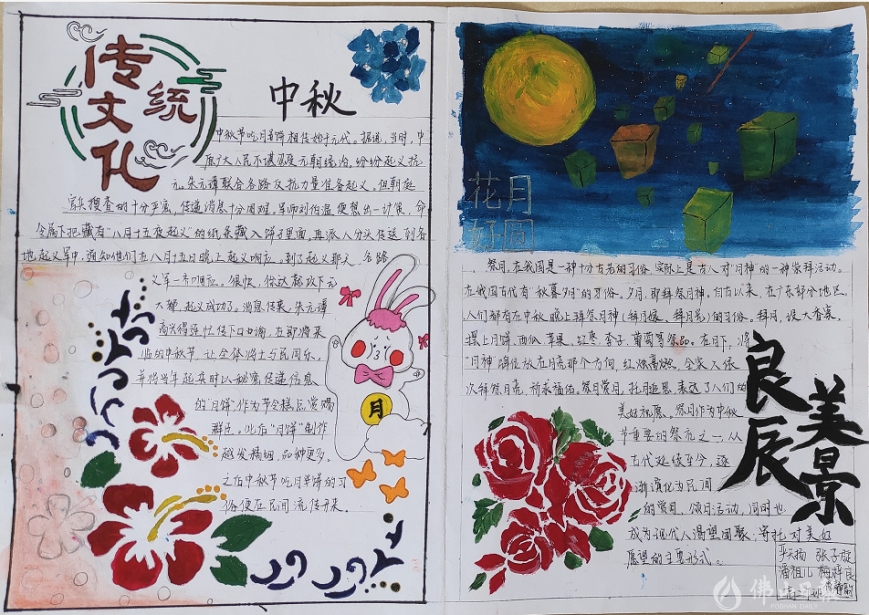 传统文化
中秋
中秋节吃月饼相传始于元代。据说，当时，中
原广大人民不堪忍受元朝统治，纷纷起义抗
元。朱元璋联合各路反抗力量准备起义。但朝廷
官兵搜查的十分严密，传递消息十分困难。军师刘伯温便想出一计策，命
令属下把藏有“八月十五夜起义”的纸条藏入饼子里面，再派人分头传送到各
地起义军中，通知他们在八月十五日晚上起义响应。到了起义那天，各路
义军一齐响应。很快，徐达就攻下元
大都，起义成功了。消息传来，朱元璋
高兴得连忙传下口谕，在即将来
临的中秋节，让全体将士与民同乐，
并将当年起兵时以秘密传递信息
的“月饼”作为节令糕点赏赐
群臣。此后“月饼”制作
越发精细，品种更多。
之后中秋节吃月饼的习
俗便在民间流传开来。
月
花月
好圆
祭月，在我国是一种十分古老的习俗，实际上是古人对“月神”的一种崇拜活动。
在我国古代有“秋暮夕月”的习俗。夕月，即拜祭月神。自古以来，在广东部分地区，
人们都有在中秋晚上拜祭月神（拜月娘、拜月光）的习俗。拜月，设大香案，
摆上月饼、西瓜、苹果、红枣、李子、葡萄等祭品。在月下，将
“月神”牌位放在月亮那个方向，红烛高燃，全家人依
次拜祭月亮，祈求福佑。祭月赏月，托月追思，表达了人们的
美好祝愿。祭月作为中秋
节重要的祭礼之一，从
古代延续至今，逐
渐演化为民间
的赏月、颂月活动，同时也
成为现代人渴望团聚，寄托对美好
愿望的主要形式。
良辰
美景
张子旋
佛山日报
FOSHAN DAILY